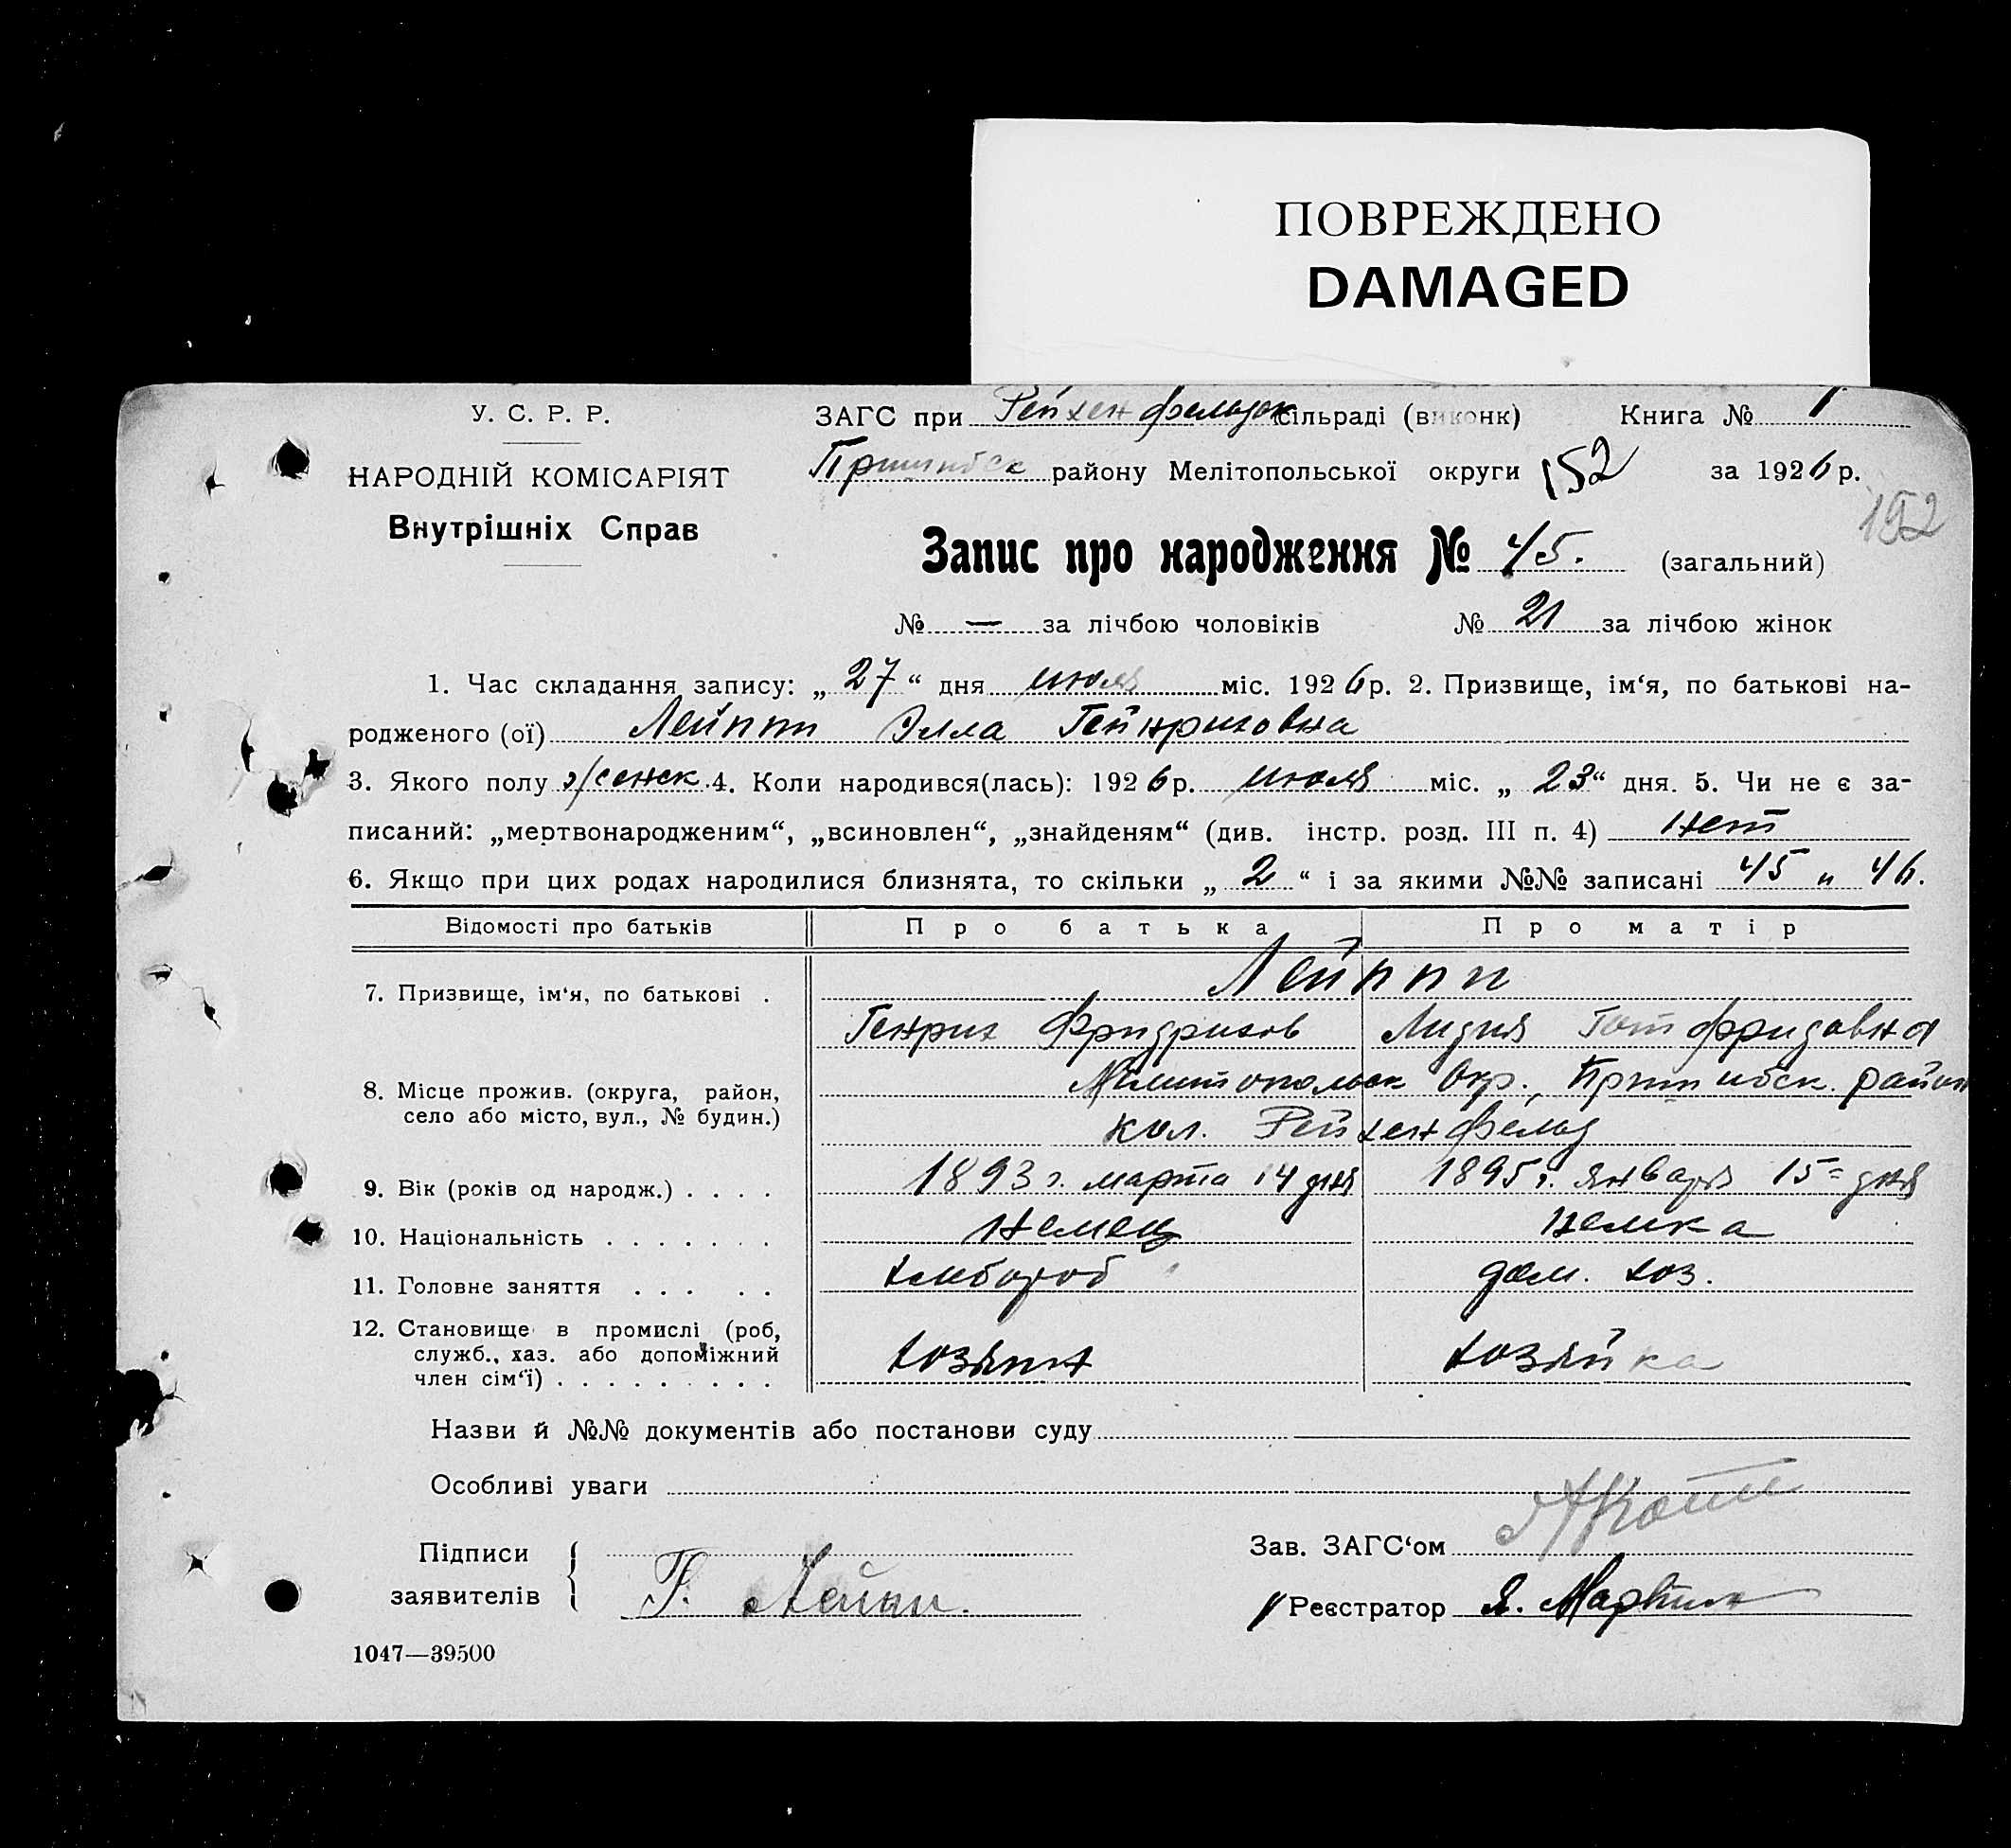 ПОВРЕЖДЕНО
DAMAGED
У. С. Р. Р.
НАРОДНІЙ КОМІСАРІЯТ
Внутрішніх Справ
ЗАГС при Рейхенфельдск сільраді (виконк) Книга № 1
Пришибск району Мелітопольської округи 152 за 1926 р.
152
Запис про народження № 45. (загальний)
№ — за лічбою чоловіків № 21 за лічбою жінок
1. Час складання запису: „ 27 “ дня июля міс. 1926 р. 2. Призвище, ім‘я, по батькові на-
родженого (ої) Лейппи Элла Гейнриховна
3. Якого полу женск. 4. Коли народився(лась): 1926 р. июля міс. „ 23 “ дня. 5. Чи не є за-
писаний: „мертвонародженим“, „всиновлен“, „знайденям“ (див. інстр. розд. III п. 4) нет
6. Якщо при цих родах народилися близнята, то скільки „ 2 “ і за якими №№ записані 45 и 46.
Відомості про батьків Про батька Про матір
7. Призвище, ім‘я, по батькові . Лейппи
Генрих Фридрихов Лидия Готфридовна
8. Місце прожив. (округа, район, село або місто, вул., № будин.) Мелитопольск Окр., Пришибск. район
кол. Рейхенфельд
9. Вік (років од народж.) . . . . 1893 г. марта 14 дня 1895 г. января 15 дня
10. Національність . . . . . . . немец немка
11. Головне заняття . . . . . хлебороб дом. хоз.
12. Становище в промислі (роб,
служб., хаз. або допоміжний
член сім‘ї) . . . . . . . . . хозяин хозяйка
Назви й №№ документів або постанови суду
Особливі уваги
Підписи
заявителів Г. Лейппи.
Зав. ЗАГС‘ом
Реєстратор Я. Мартин
1047—39500